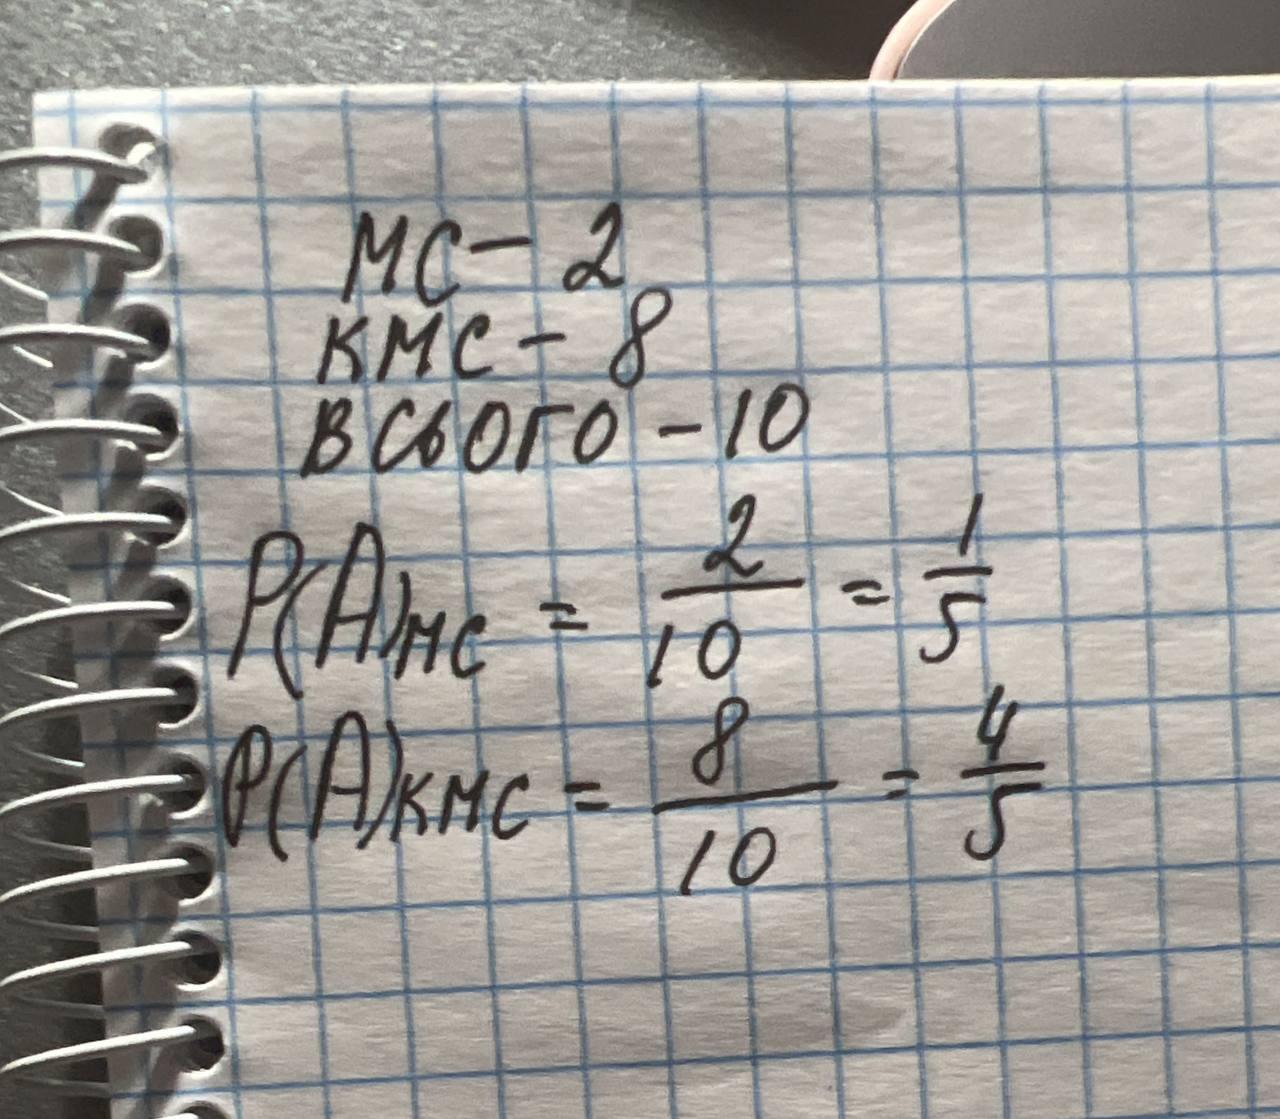 МС - 2
КМС - 8
ВСЬОГО - 10
P(A)МС = 2/10 = 1/5
P(A)КМС = 8/10 = 4/5